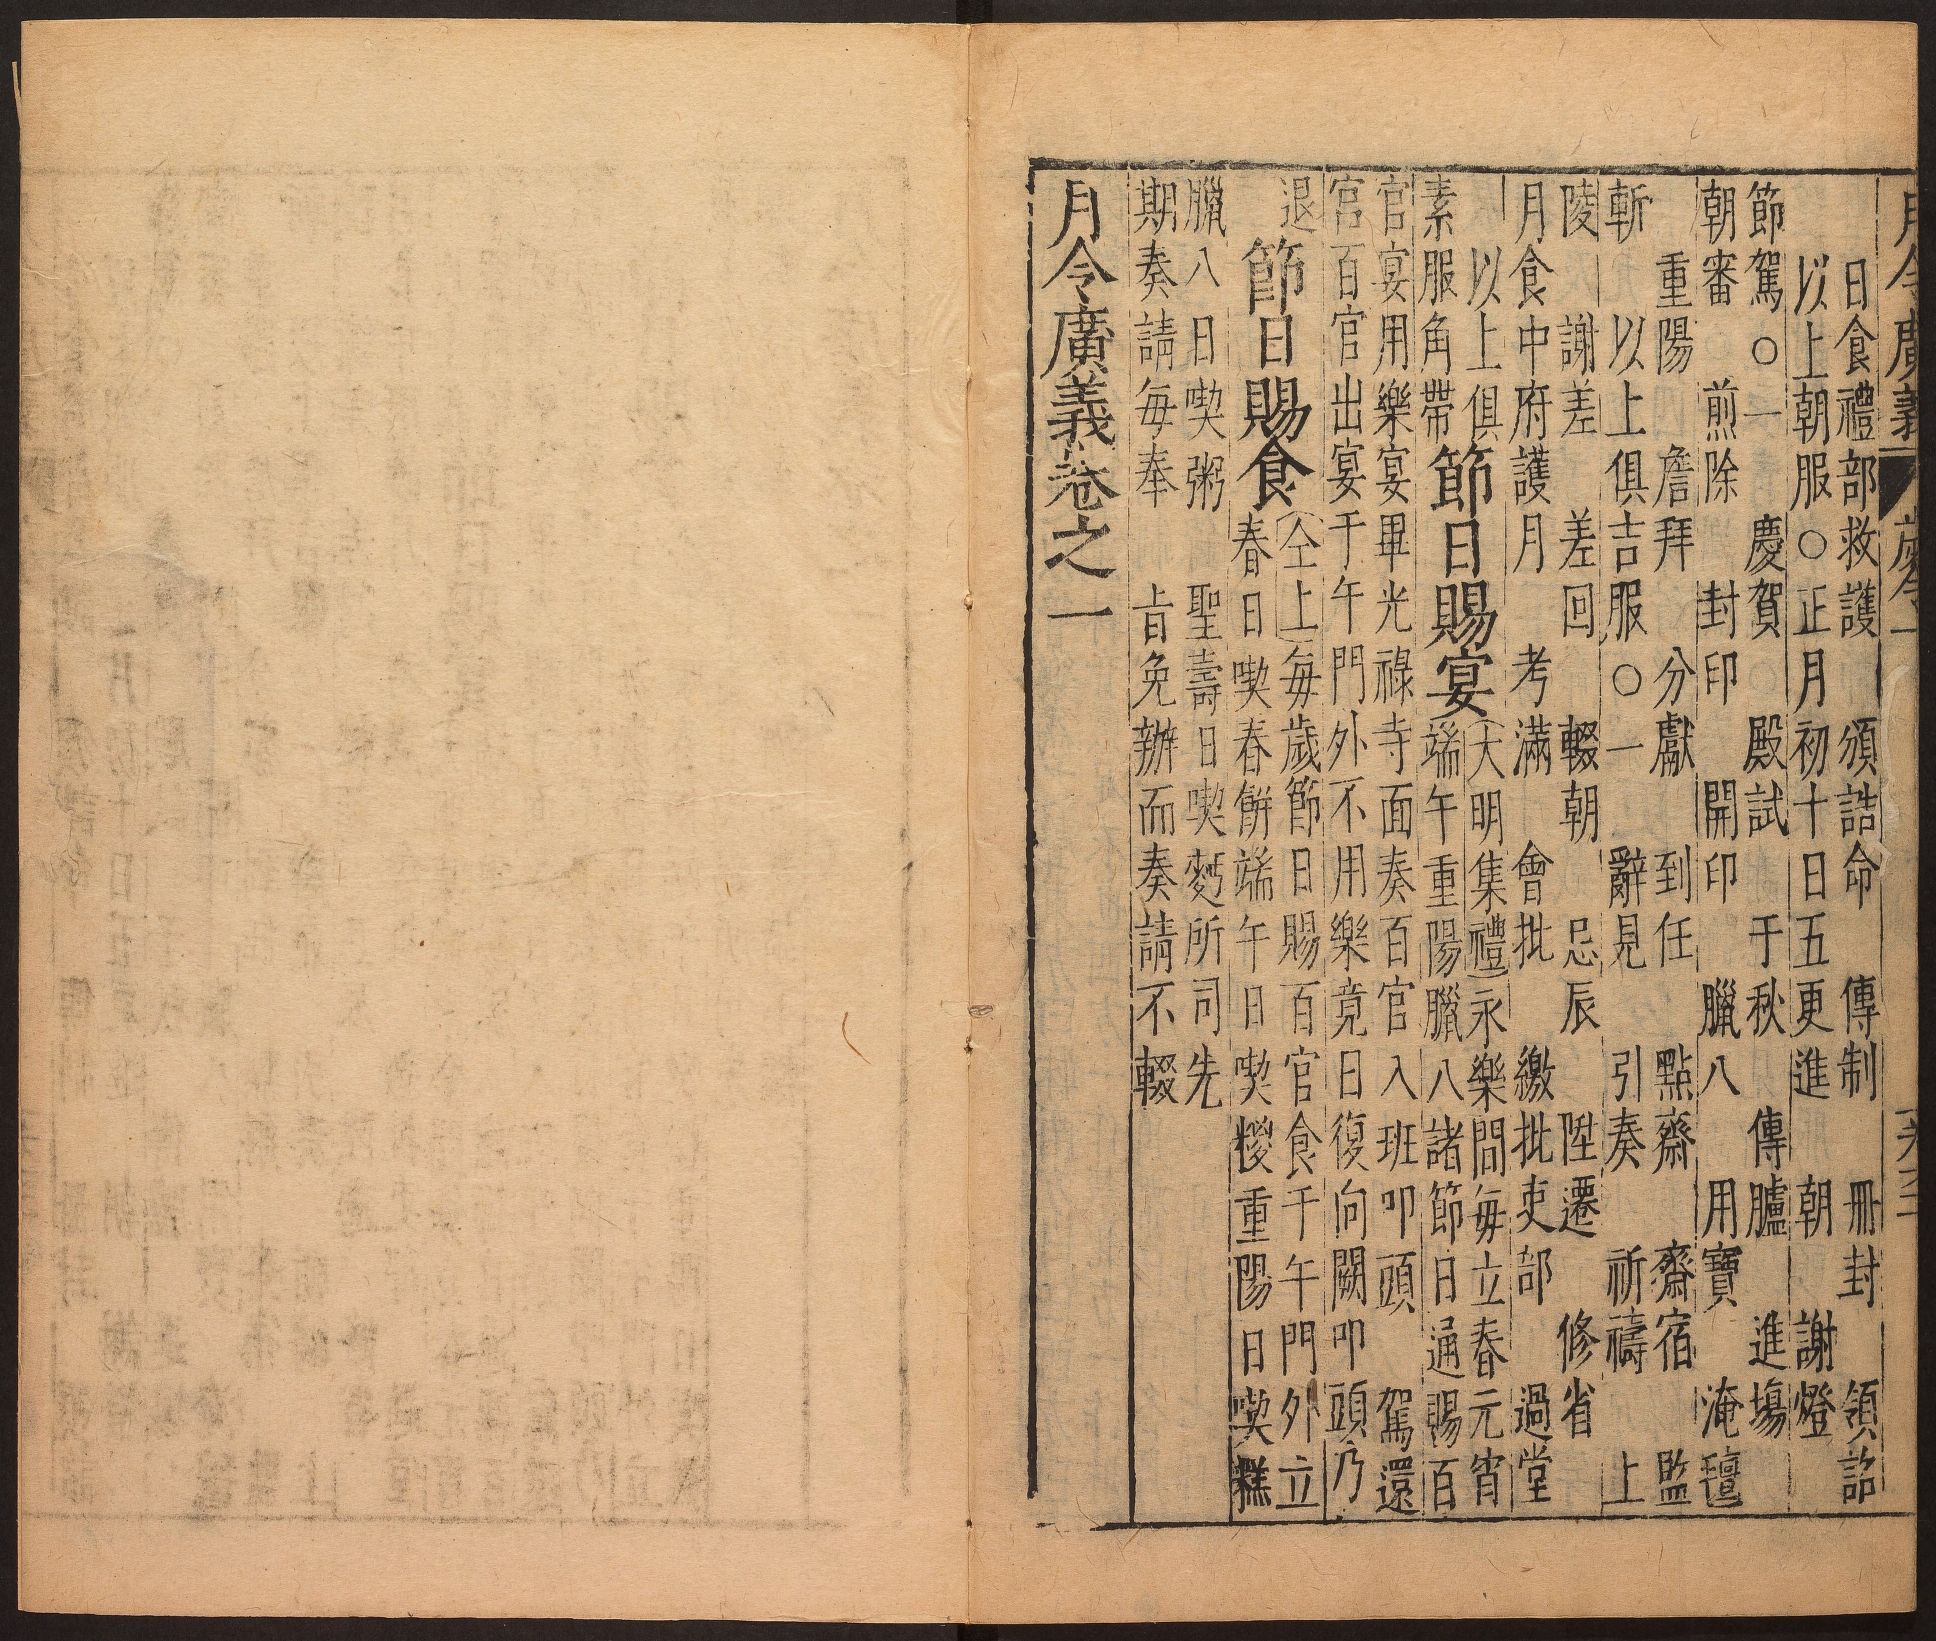 月令廣義 歲令一
日食禮部救護 頒誥命 傳制 冊封 領詔
以上朝服○正月初十日五更進 朝 謝燈
節駕○一 慶賀 殿試 于秋 傳臚 進塲
朝審 煎除 封印 開印 臘八 用寶 淹氊
重陽 詹拜 分獻 到任 點齋 齋宿 監
斬 以上俱吉服○一 辭見 引奏 祈禱 上
陵 謝差 差回 輟朝 忌辰 陞遷 修省
月食中府護月 考滿 會批 繳批吏部 過堂
以上俱
素服角帶
節日賜宴
(大明集禮)永樂間每立春元宵
端午重陽臘八諸節日通賜百
官宴用樂宴畢光祿寺面奏百官入班叩頭 駕還
宮百官出宴于午門外不用樂竟日復向闕叩頭乃
退
節日賜食
(仝上)每歲節日賜百官食于午門外立
春日喫春餅端午日喫糉重陽日喫糕
臘八日喫粥 聖壽日喫麪所司先
期奏請每奉 旨免辦而奏請不輟
月令廣義卷之一